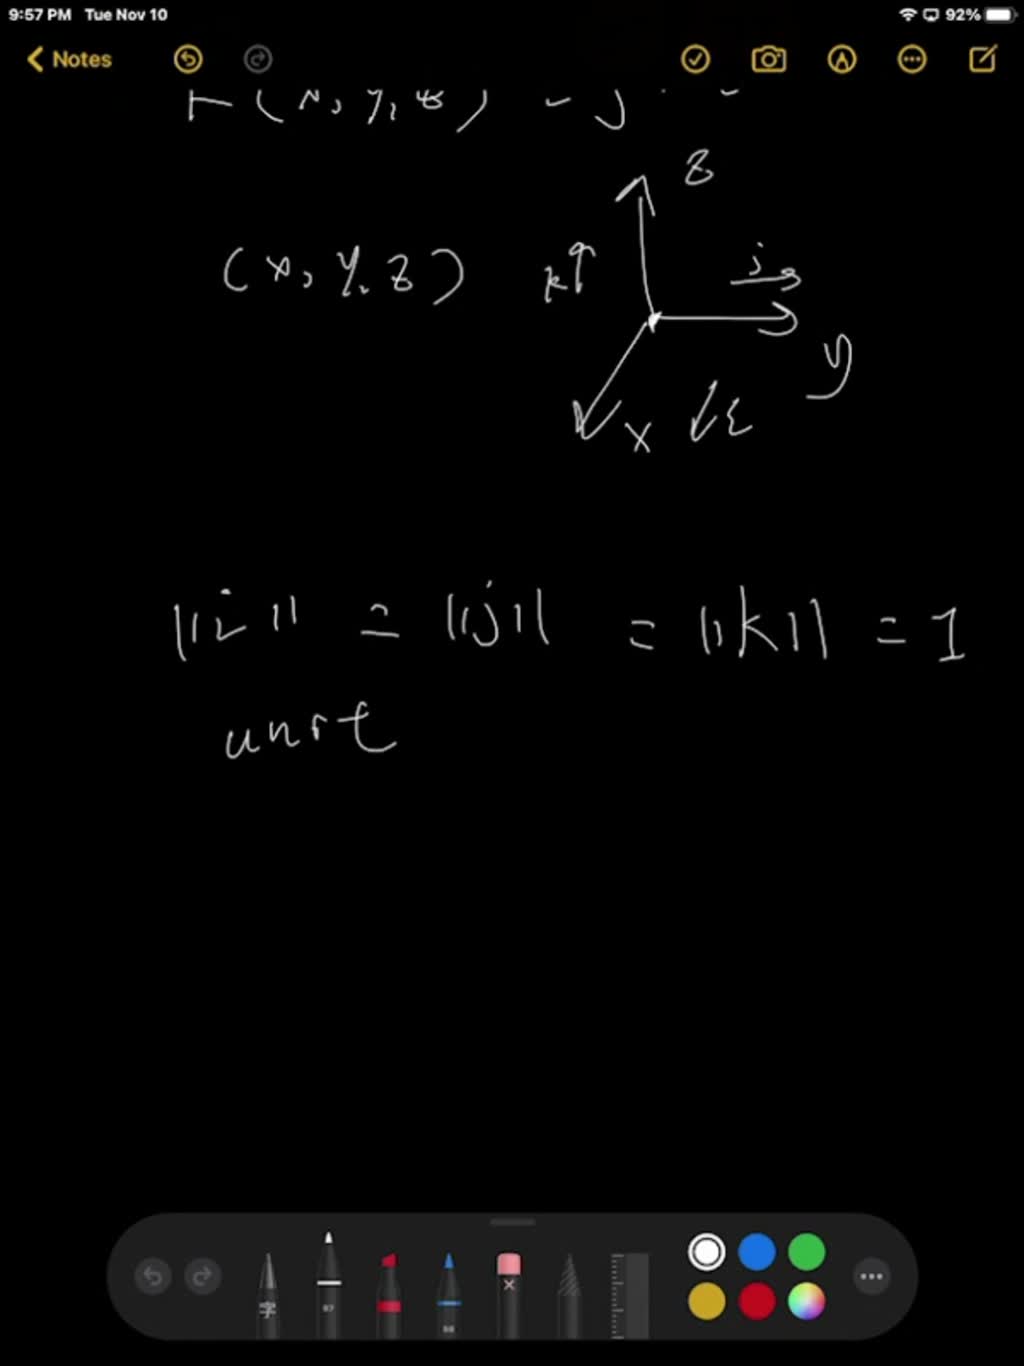 9:57 PM Tue Nov 10 92%
Notes
z
(x, y, z) k j
y
x i
||i|| = ||j|| = ||k|| = 1
unit
97
88
字